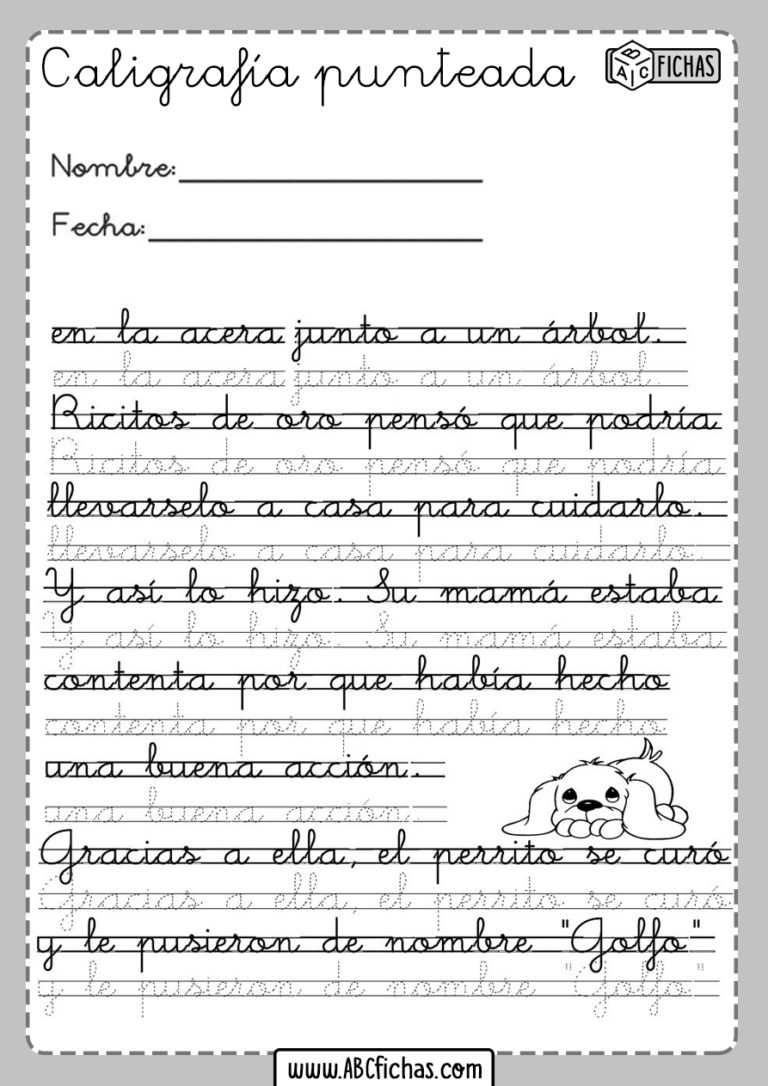 Caligrafía punteada
ABC FICHAS
Nombre:
Fecha:
en la acera junto a un árbol.
en la acera junto a un árbol.
Ricitos de oro pensó que podría
Ricitos de oro pensó que podría
llevarselo a casa para cuidarlo.
llevarselo a casa para cuidarlo.
Y así lo hizo. Su mamá estaba
Y así lo hizo. Su mamá estaba
contenta por que había hecho
contenta por que había hecho
una buena acción.
una buena acción.
Gracias a ella, el perrito se curó
Gracias a ella, el perrito se curó
y le pusieron de nombre "Golfo"
y le pusieron de nombre "Golfo"
www.ABCfichas.com